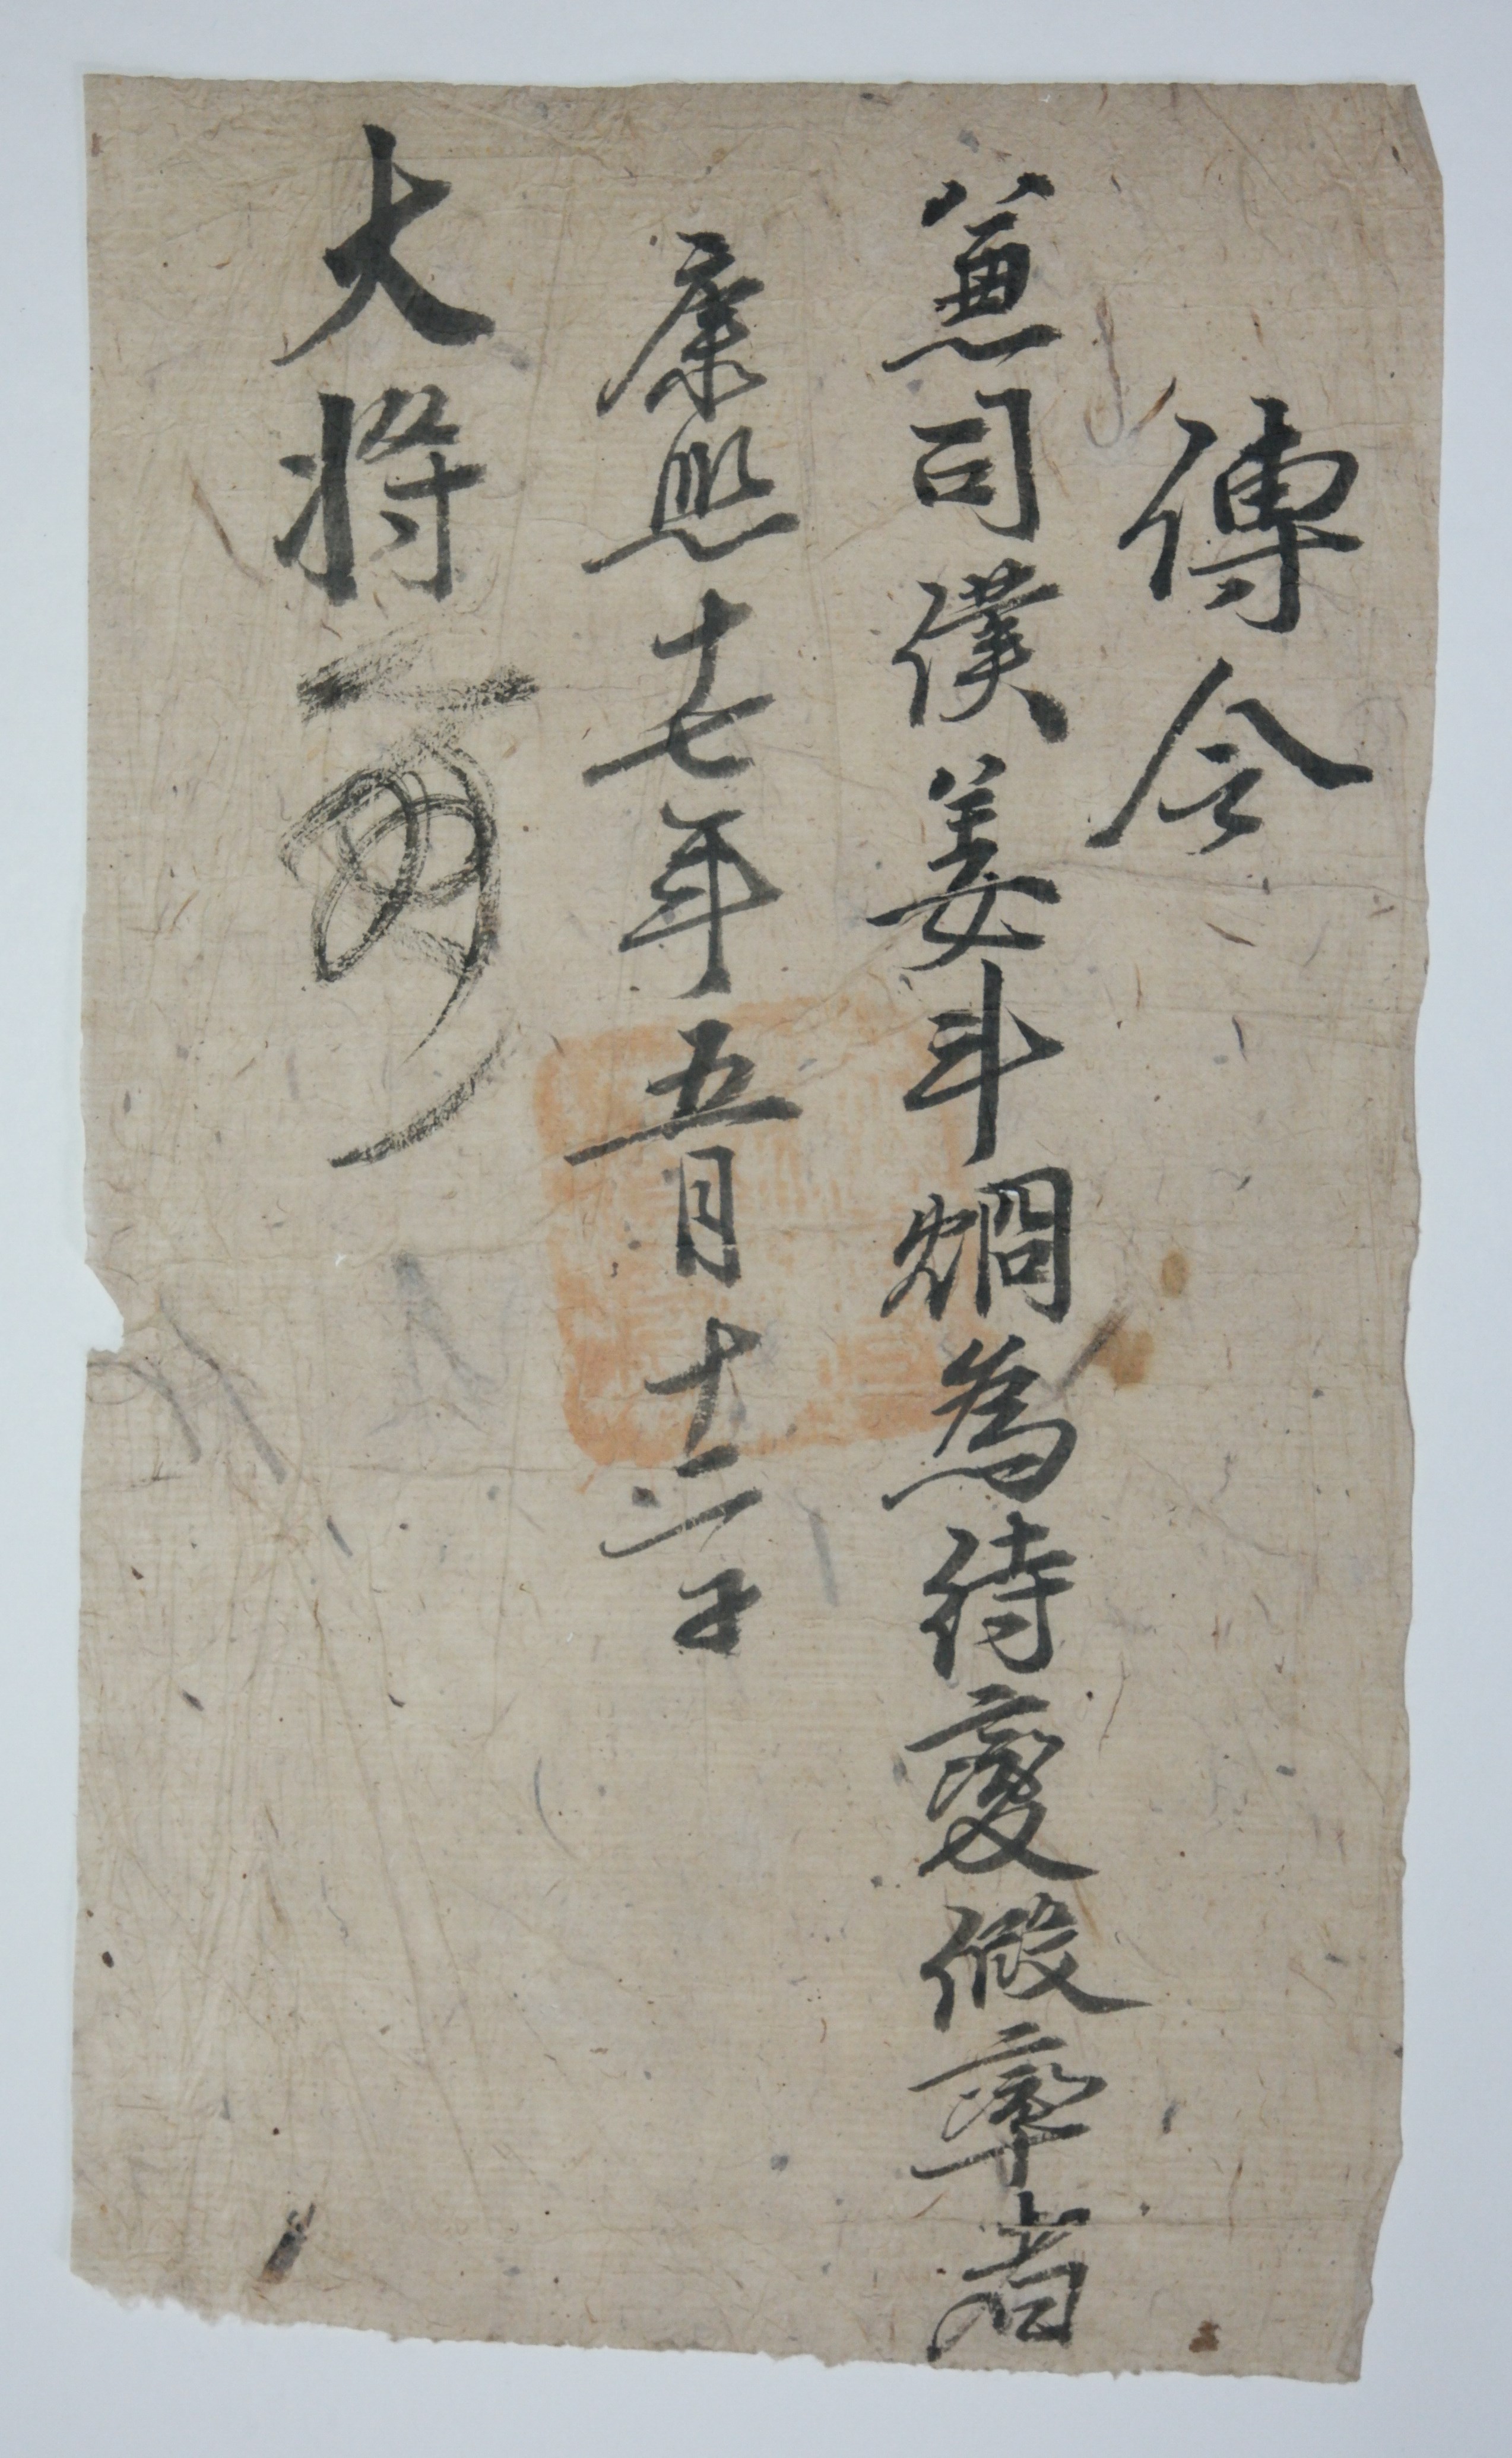 傳令
兼司僕姜斗烱為待變假率者
康熙十七年五月十二日
大將